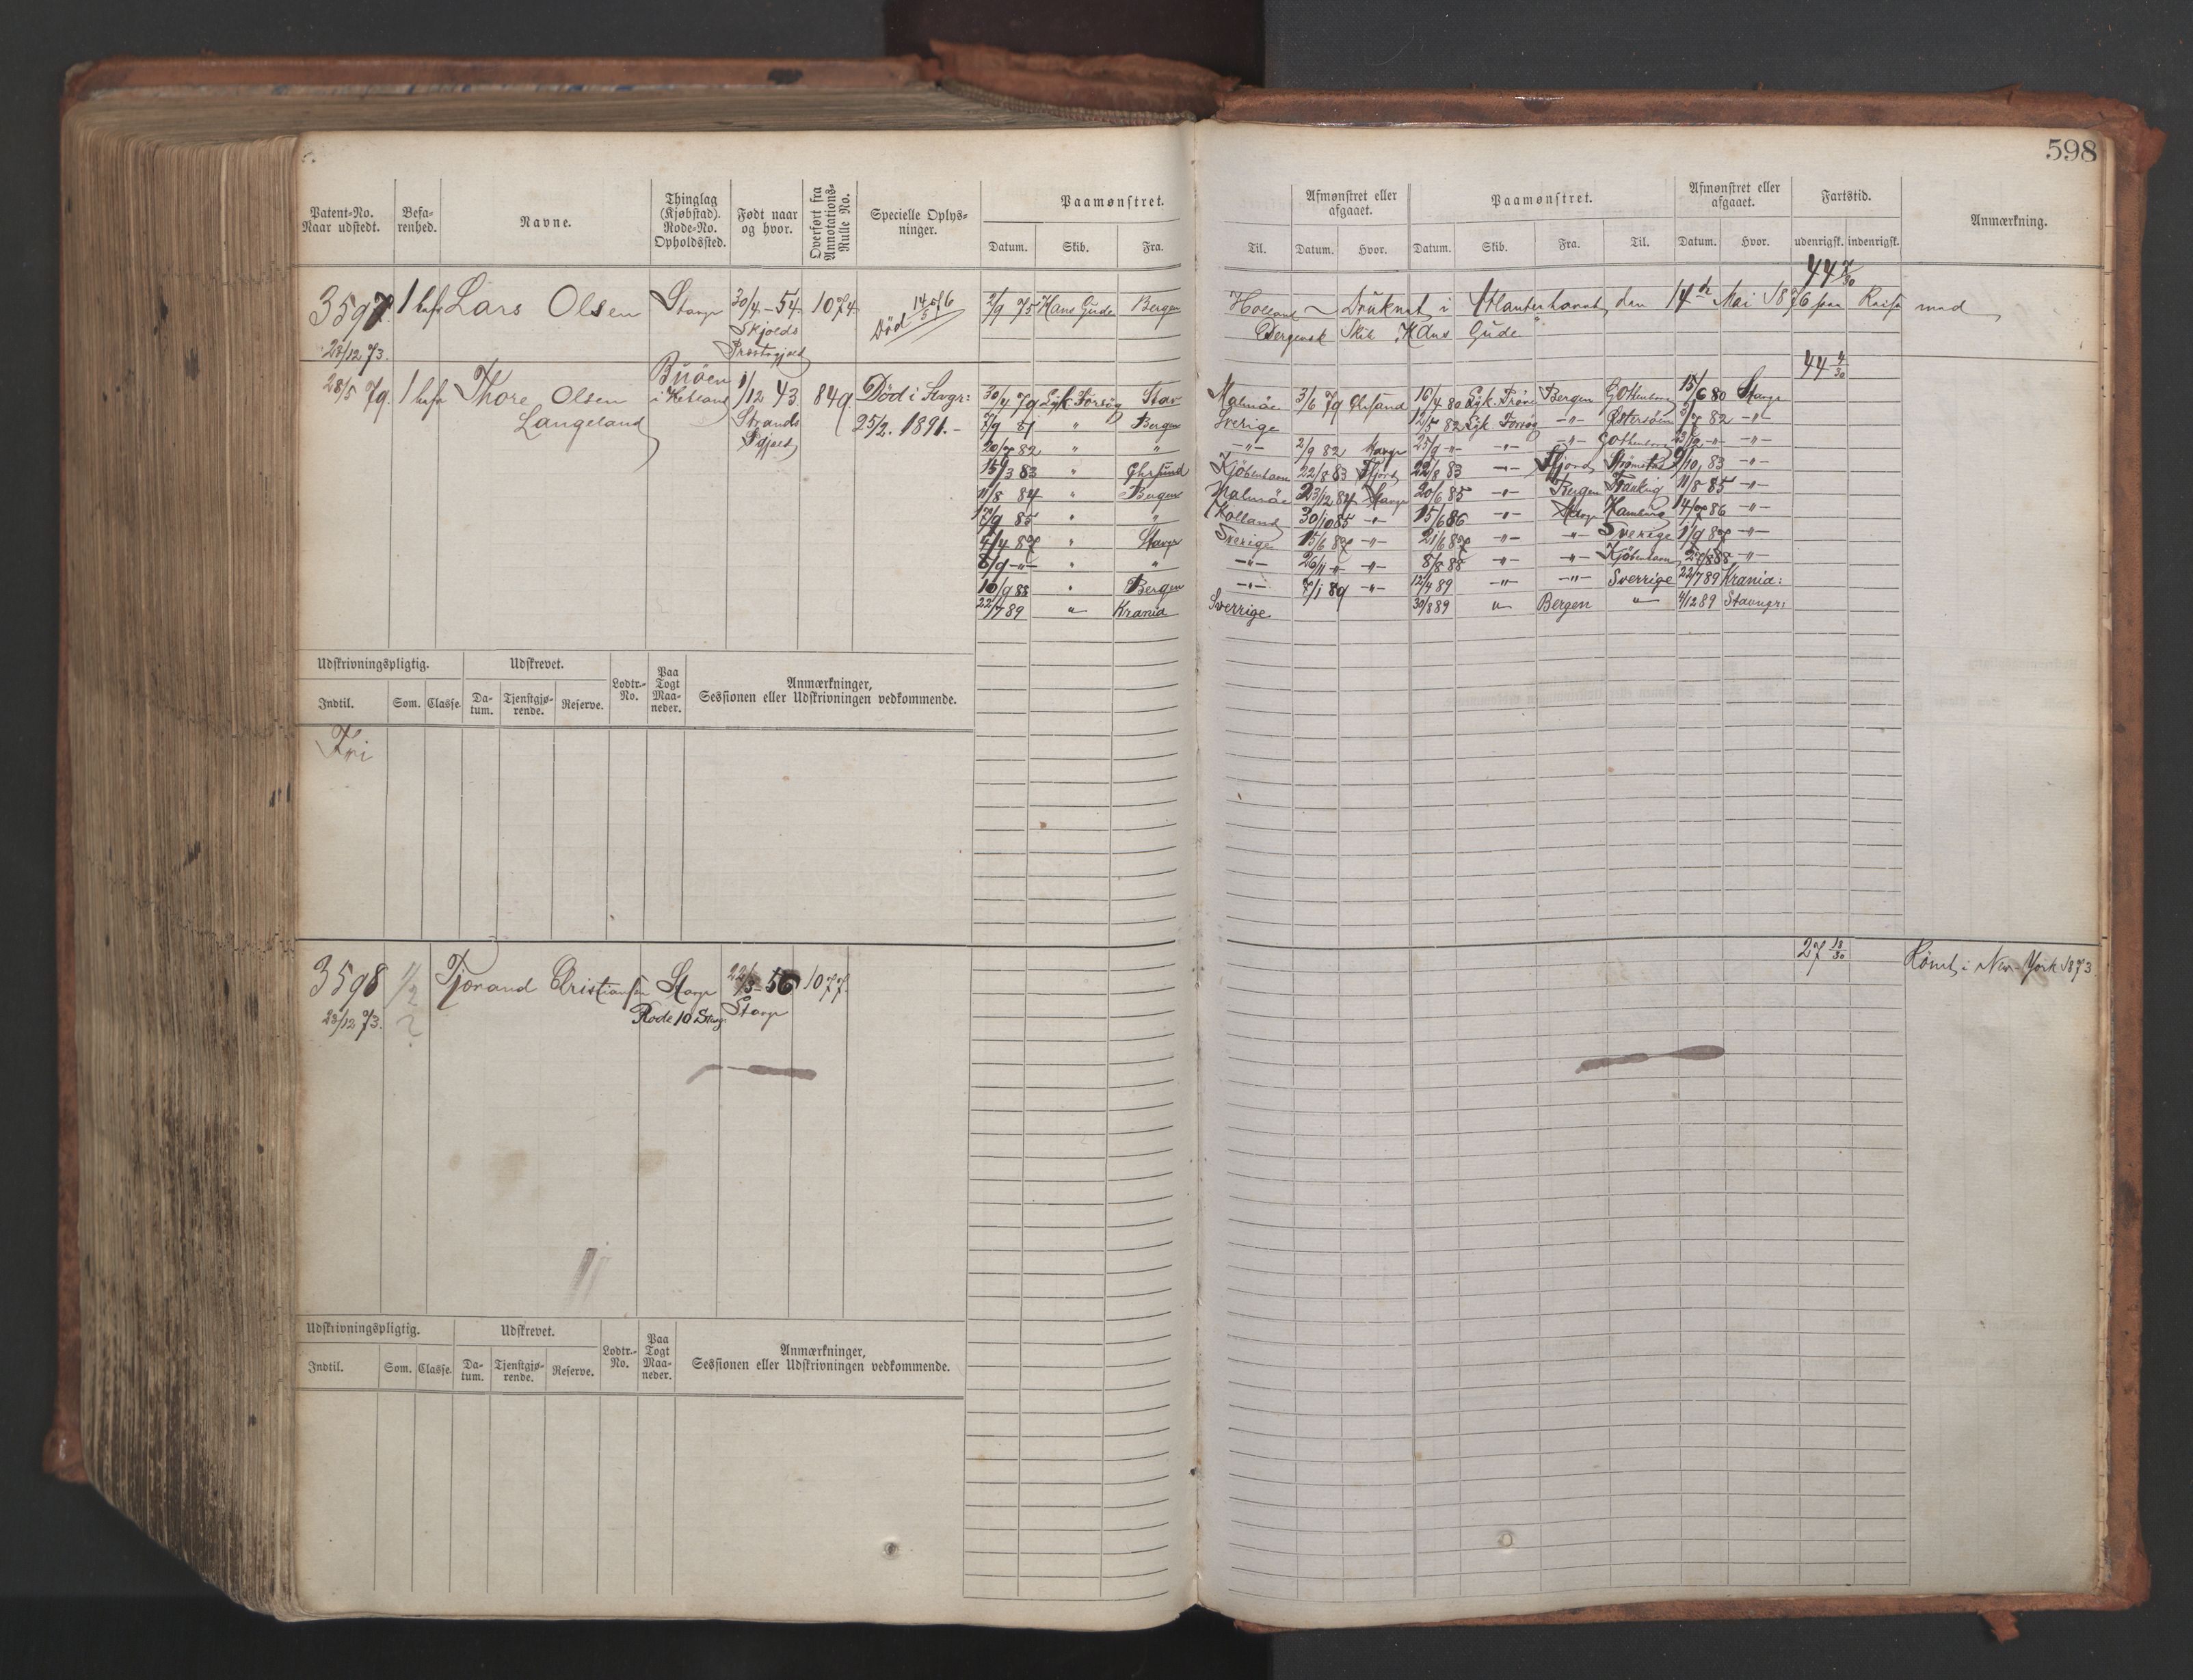 598
Patent-No. Naar udstedt. Befa-renhed. Navne. Thinglag (Kjøbstad). Rode-No. Opholdssted. Født naar og hvor. Overført fra Annotations-Rulle No. Specielle Oplys-ninger. Paamønstret. Afmønstret eller afgaaet. Paamønstret. Afmønstret eller afgaaet. Fartstid. Anmærkning.
Datum. Skib. Fra. Til. Datum. Hvor. Datum. Skib. Fra. Til. Datum. Hvor. udenrigsk. indenrigsk.
3597 1 Lars Olsen Stavgr 30/4-54 1074 Død 14/5 76 2/9 75 Hans Gude Bergen Holland Druknet i den 14de Mai 1876 paa Reise med
28/12 73. Skjolds Præstegjeld Bergensk Skib "Hans Gude"
44 4/30
28/5 79. 1 Thore Olsen Langeland Buøen i Hetland 1/12 43 Strands Pgjeld 849 Død i Stavgr: 25/2. 1891.-
30/4 79 Forsøg Stav Malmøe 3/6 79 16/4 80 Bergen Gothenborg 15/6 80 Stavgr
7/9 81 " Bergen Sverige 12/5 82 Forsøg -"- Østersøen 3/7 82 -"-
20/7 82 " " -"- 2/9 82 Stavgr 25/9 -"- -"- -"- Gothenborg -"- -"-
15/3 83 " Kjøbenhavn 22/8 83 22/8 83 -"- Strømstad 9/10 83 -"-
11/8 84 " Bergen Malmøe 23/12 84 Stavgr 20/6 85 -"- Bergen 11/8 85 -"-
17/9 85 " " Holland 30/10 85 -"- 15/6 86 -"- Stavgr Hamburg 14/7 86 -"-
4/4 87 " Stavgr Sverige 15/6 87 -"- 21/6 87 -"- -"- Sverige 1/9 87 -"-
6/9 -"- " " -"- 26/11 -"- -"- 8/8 88 -"- -"- Kjøbenhavn 88 -"-
10/9 88 " Bergen -"- 7/1 89 -"- 12/4 89 -"- -"- Sverrige 22/7 89 Krania:
22/7 89 " Krania Sverrige 30/8 89 " Bergen " 4/12 89 Stavngr:
Udskrivningspligtig. Udskrevet. Lodtr.-No. Paa Togt Maa-neder. Anmærkninger, Sessionen eller Udskrivningen vedkommende.
Indtil. Som. Classe. Da-tum. Tjenstgjø-rende. Reserve.
Fri
3598 1/2 Tjorand Christiansen Stavgr 22/3-56 1077. 27 18/30 Rømt i New-York 1873
28/12 73. ? Rode 10 Stavgr Stavgr
Udskrivningspligtig. Udskrevet. Lodtr.-No. Paa Togt Maa-neder. Anmærkninger, Sessionen eller Udskrivningen vedkommende.
Indtil. Som. Classe. Da-tum. Tjenstgjø-rende. Reserve.